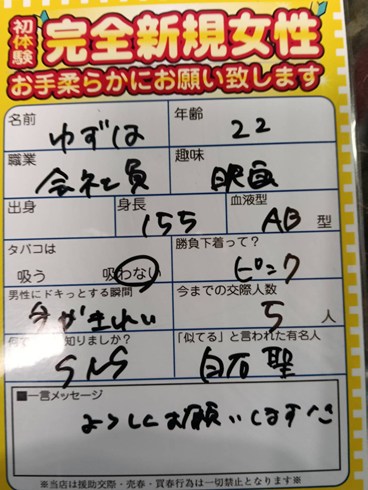 初体験 完全新規女性
お手柔らかにお願い致します
名前 ゆずは 年齢 22
職業 会社員 趣味 映画
出身 身長 155 血液型 AB 型
タバコは 勝負下着って?
吸う 吸わない ピンク
男性にドキっとする瞬間 今までの交際人数
きれい 5 人
知りましたか? 「似てる」と言われた有名人
SNS 白石 聖
■一言メッセージ
よろしくお願いします
※当店は援助交際・売春・買春行為は一切禁止となります※